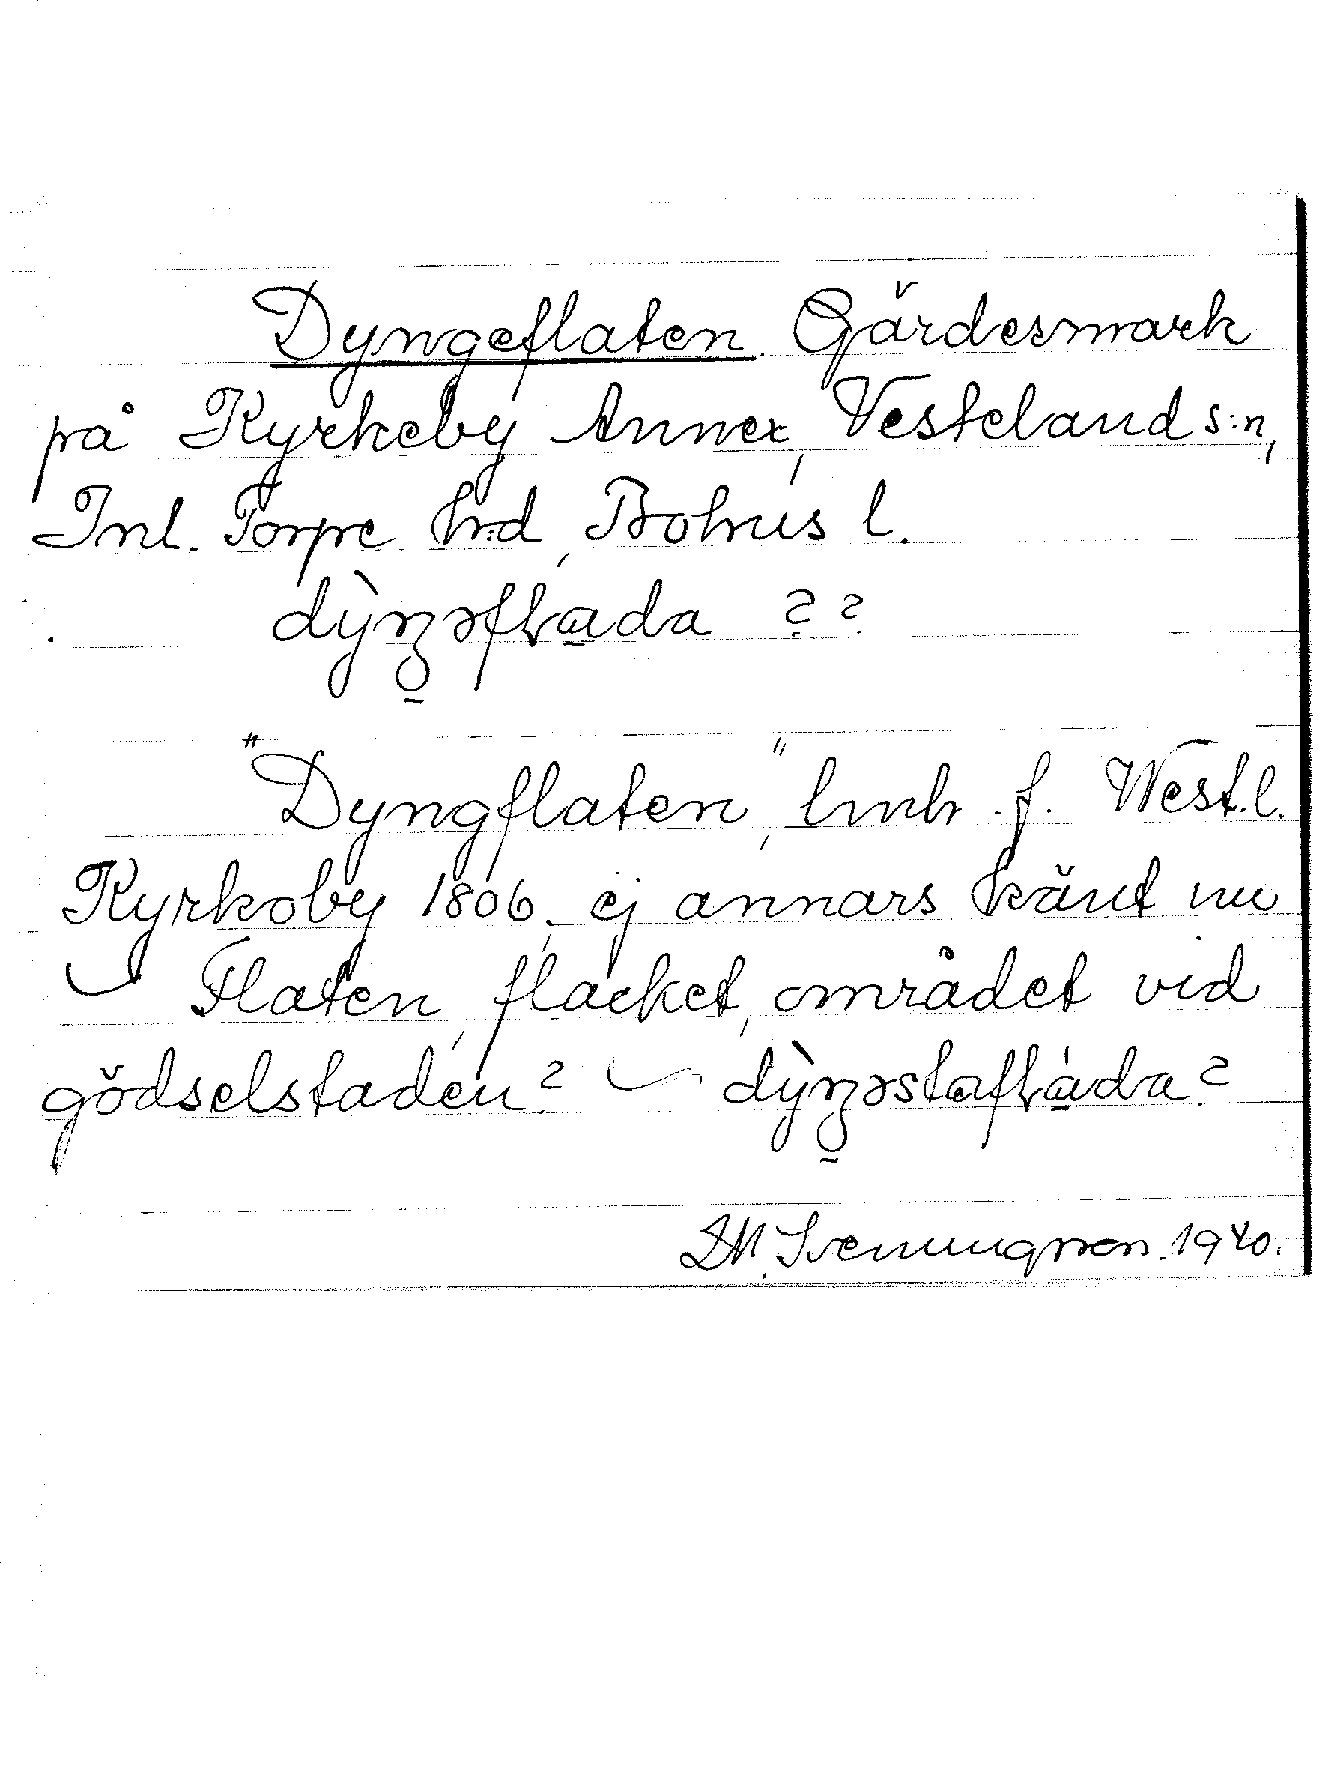 Dyngeflaten. Gärdesmark
på Kyrkeby Annex, Vesteland s:n,
Inl. Torpe hrd, Bohus l.
dỳŋəflada ??
"Dyngflaten", lmh. f. Westl.
Kyrkoby 1806, ej annars känt nu
Flaten, flacket, området vid
gödselstaden? dỳŋəstaflada?
Svenungsson. 1940.